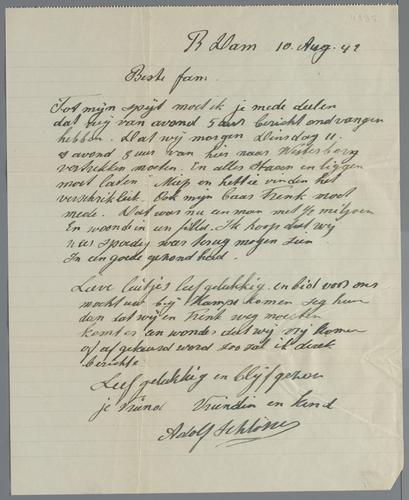 R'dam 10 Aug. 42
Beste fam.
Tot mijn spijt moet ik je mede deelen
dat wij van avond 5 uur bericht ondvangen
hebben. Dat wij morgen Dinsdag 11
s avond 8 uur van hier naar Westerbork
vertrekken moeten. En alles staan en liggen
moet laten. Miep en hebbie vinden het
verschrikkelik. Ook mijn baas Frenk moet
mede. Dat was nu een man met
En woonde in een Ik hoop dat wij
u weer spoedig weer terug mogen zien
In een goede gezondheid.
Lieve luitjes leef gelukkig en bid voor ons
mocht uw bij Kamps komen zeg hun
dan dat wij en Frenk weg moeten
komt er een wonder dat wij vrij komen
of afgekeurd word zoo zal ik direk
berichte
Leef gelukkig en blijf gezon
je vriend Vriendin en kind
Adolf Schlösser